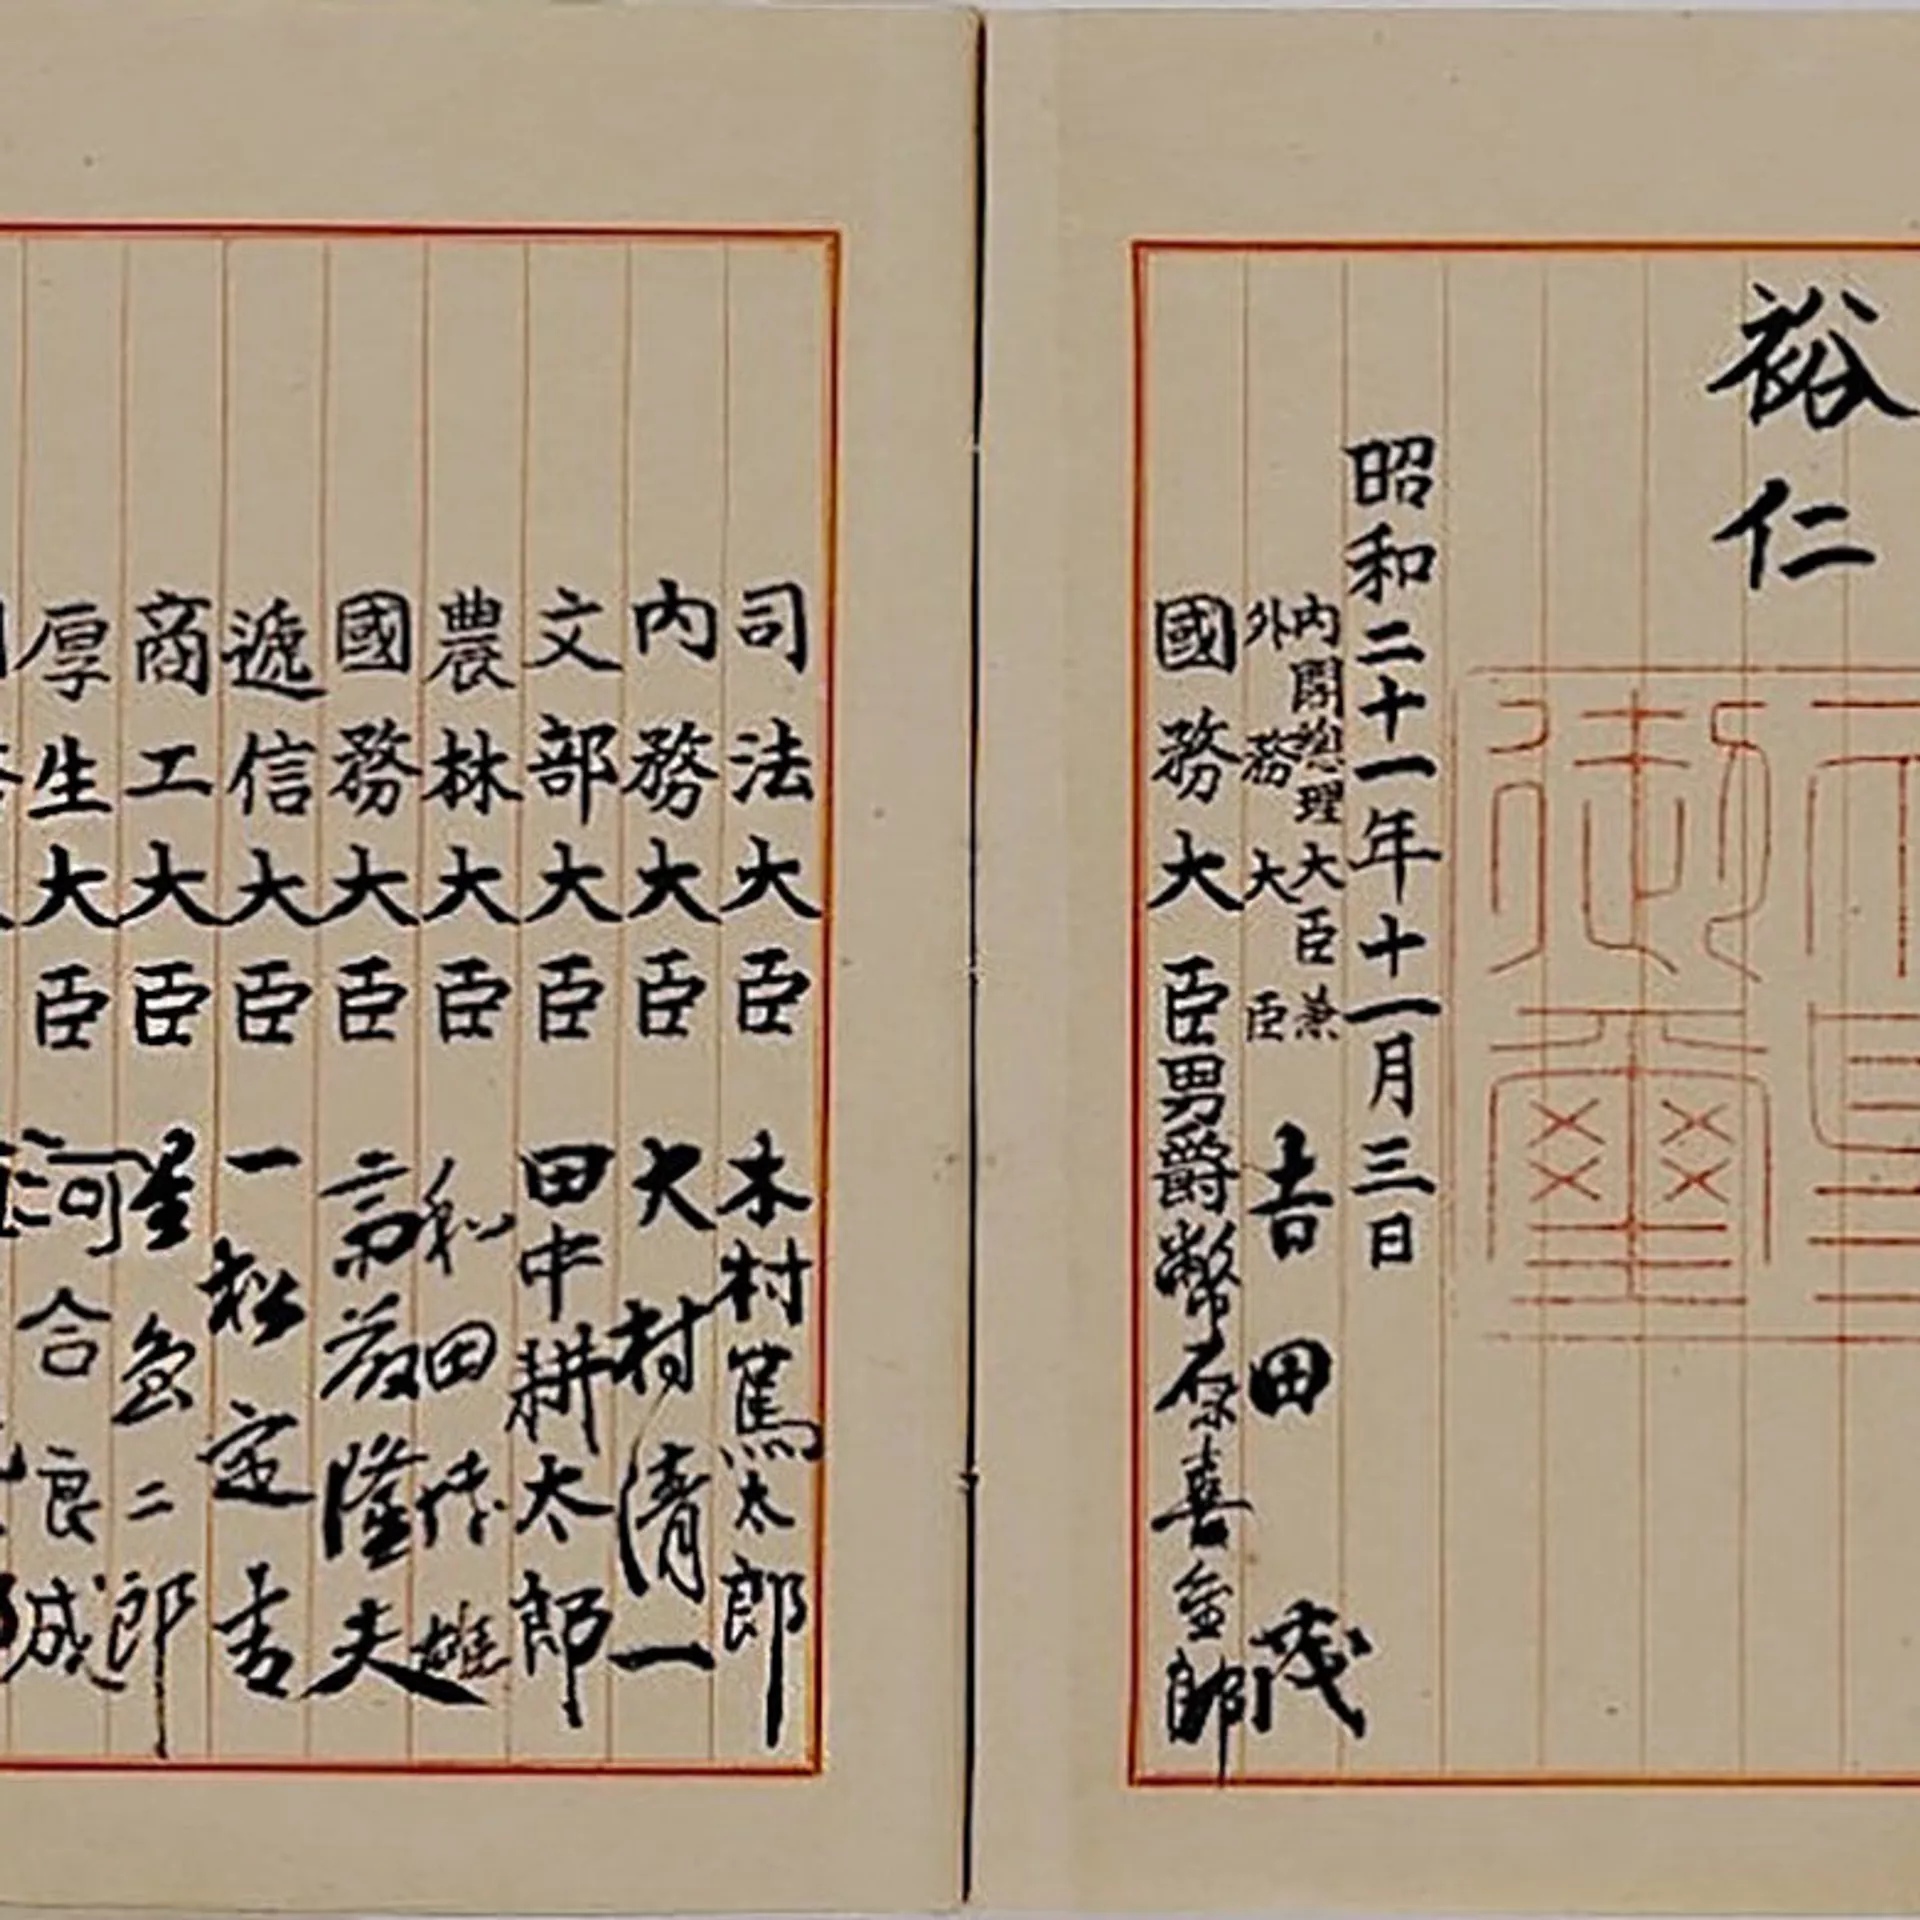 裕仁
昭和二十一年十一月三日
内閣総理大臣兼
外務大臣 吉田茂
國務大臣 男爵幣原喜重郎
司法大臣 木村篤太郎
内務大臣 大村清一
文部大臣 田中耕太郎
農林大臣 和田博雄
國務大臣 斎藤隆夫
遞信大臣 一松定吉
商工大臣 星島二郎
厚生大臣 河合良成